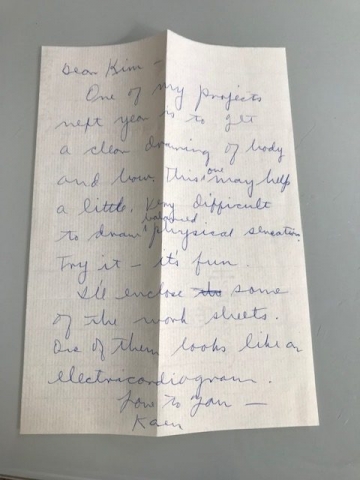 Dear Kim –
One of my projects
next year is to get
a clear drawing of body
and how. This one may help
a little. Very difficult
to draw balanced physical sensation.
Try it – it's fun.
I'll enclose some
of the work sheets.
One of them looks like an
electricardiagram.
Love to you –